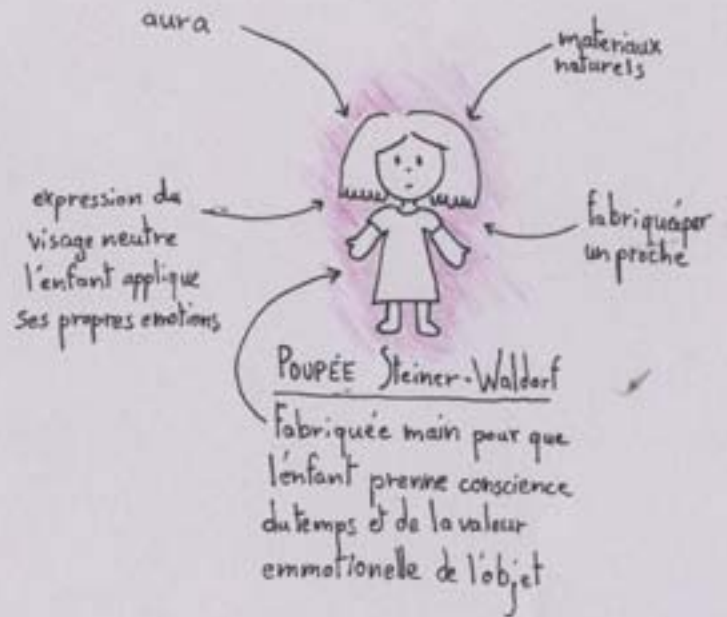 aura
materiaux
naturels
expression du
visage neutre
l'enfant applique
ses propres emotions
fabriquée par
un proche
POUPÉE Steiner-Waldorf
Fabriquée main pour que
l'enfant prenne conscience
du temps et de la valeur
emmotionelle de l'objet